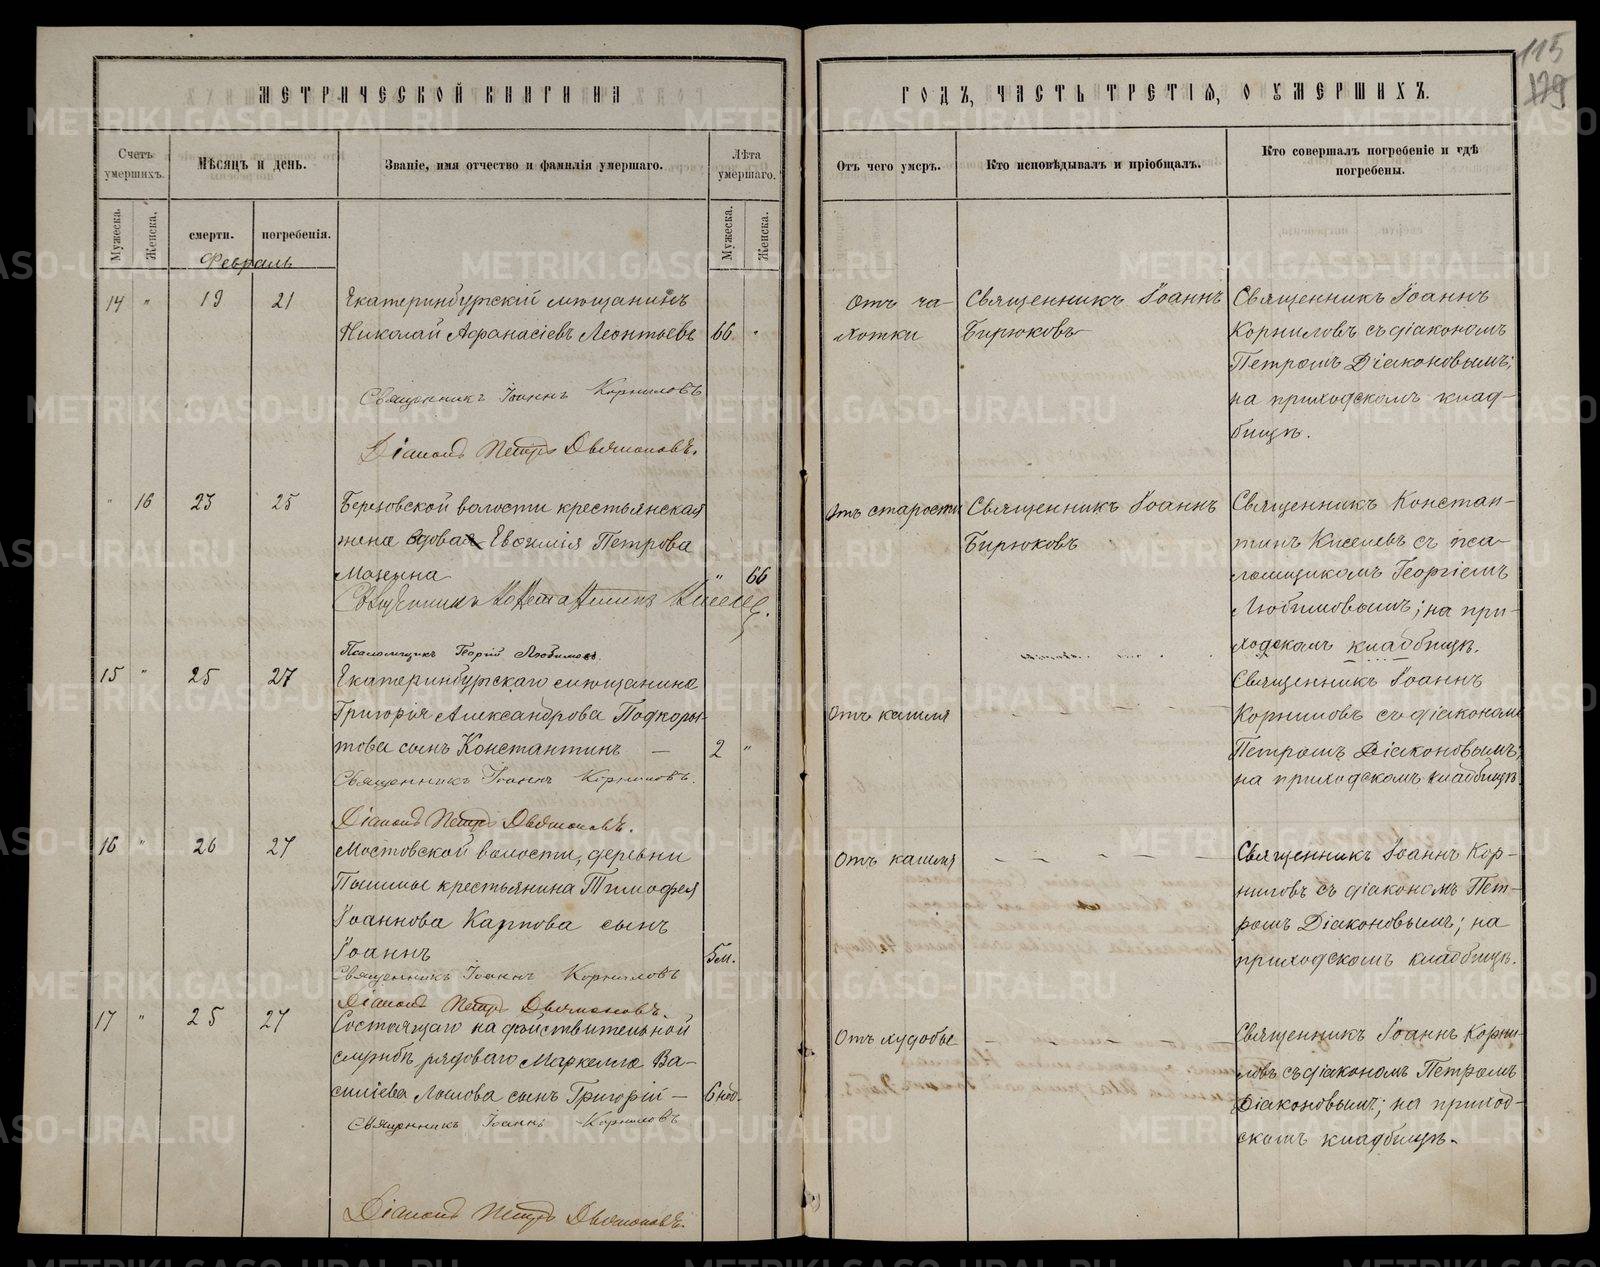 115
179
МЕТРИЧЕСКОЙ КНИГИ НА
ГОДЪ, ЧАСТЬ ТРЕТІЯ, О УМЕРШИХЪ.
Счетъ умершихъ.
Мѣсяцъ и день.
Званіе, имя отчество и фамилія умершаго.
Лѣта умершаго.
Мужеска.
Женска.
смерти.
погребенія.
Мужеска.
Женска.
Отъ чего умеръ.
Кто исповѣдывалъ и пріобщалъ.
Кто совершалъ погребеніе и гдѣ
погребены.
Февраль
14 " 19 21
Екатеринбургскій мѣщанинъ
Николай Афанасіевъ Леонтьевъ 66 "
Священникъ Іоаннъ Корниловъ
Діаконъ Петръ Дьяконовъ.
Отъ ча-
хотки
Священникъ Іоаннъ
Бирюковъ
Священникъ Іоаннъ
Корниловъ съ діакономъ
Петромъ Діаконовымъ;
на приходскомъ клад-
бищѣ.
" 16 23 25
Березовской волости крестьянская
жена вдова Евѳимія Петрова
Мазеина " 66
Священникъ Константинъ Киселевъ.
Псаломщикъ Георгій Любимовъ.
Отъ старости
Священникъ Іоаннъ
Бирюковъ
Священникъ Констан-
тинъ Киселевъ съ пса-
ломщикомъ Георгіемъ
Любимовымъ; на при-
ходскомъ кладбищѣ.
15 " 25 27
Екатеринбургскаго мѣщанина
Григорія Александрова Подкоры-
това сынъ Константинъ — 2 "
Священникъ Іоаннъ Корниловъ.
Діаконъ Петръ Дьяконовъ.
Отъ кашля
Священникъ Іоаннъ
Корниловъ съ діакономъ
Петромъ Діаконовымъ;
на приходскомъ кладбищѣ.
16 " 26 27
Мостовской волости, деревни
Пышмы крестьянина Тимофея
Іоаннова Карпова сынъ
Іоаннъ 5 м.
Священникъ Іоаннъ Корниловъ
Діаконъ Петръ Дьяконовъ.
Отъ кашля
Священникъ Іоаннъ Кор-
ниловъ съ діакономъ Пет-
ромъ Діаконовымъ; на
приходскомъ кладбищѣ.
17 " 25 27
Состоящаго на дѣйствительной
службѣ рядоваго Маркелла Ва-
силіева Ломова сынъ Григорій — 6 нед.
Священникъ Іоаннъ Корниловъ
Діаконъ Петръ Дьяконовъ.
Отъ худобы
Священникъ Іоаннъ Корни-
ловъ съ діакономъ Петромъ
Діаконовымъ; на приход-
скомъ кладбищѣ.
METRIKI.GASO-URAL.RU